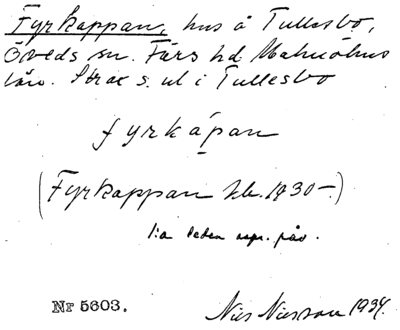 Fyrkappan, hus å Tullesbo,
Öveds sn. Färs hd Malmöhus
län. Strax s. ut i Tullesbo
fyrkápan
(Fyrkappan kb. 1830–)
1:a leden uppr.
Nr 5603. Nils Nilsson 1934.